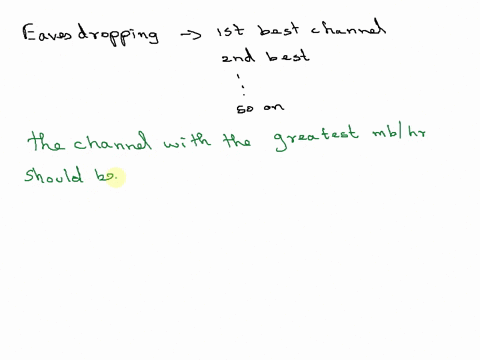 Eavesdropping → 1st best channel
2nd best
⋮
so on
the channel with the greatest mb/hr
should be